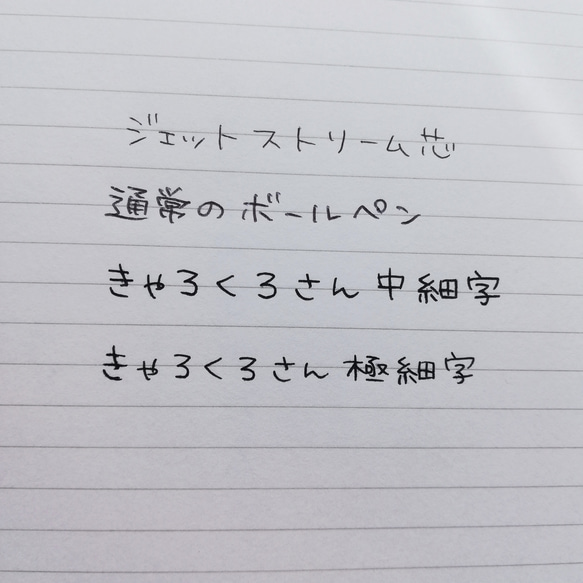 ジェットストリーム芯
通常のボールペン
きゃろくろさん 中細字
きゃろくろさん 極細字